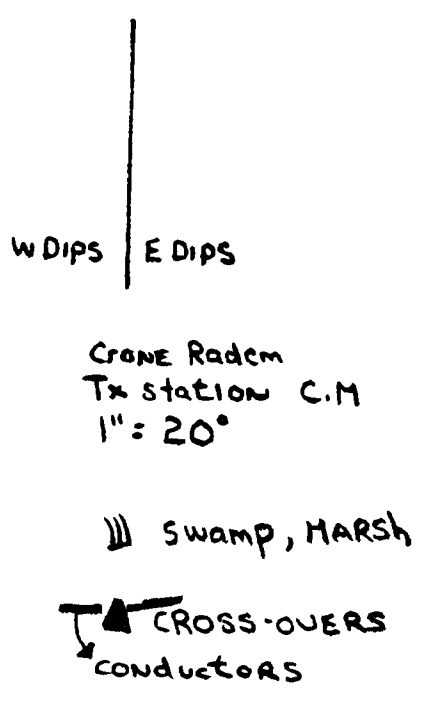 W DIPS E DIPS
CRONE Radem
Tx Station C.M
1" = 20°
Swamp, MARSh
CROSS-OVERS
CONDUCTORS